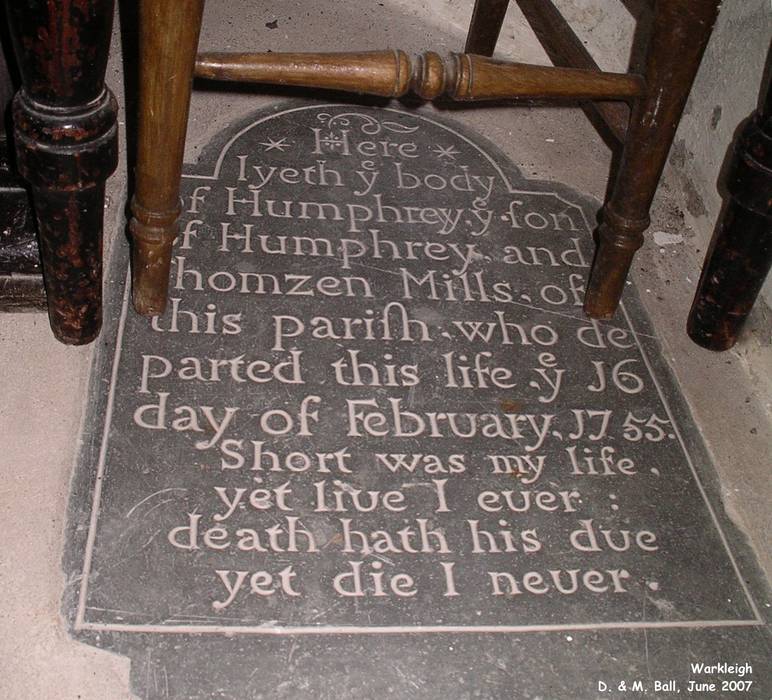 Here
lyeth yͤ body
of Humphrey yͤ ſon
of Humphrey, and
homzen Mills, of
this pariſh, who de
parted this life yͤ J6
day of February, J755.
Short was my life,
yet liue I euer :
death hath his due
yet die I neuer.
Warkleigh
D. & M. Ball, June 2007